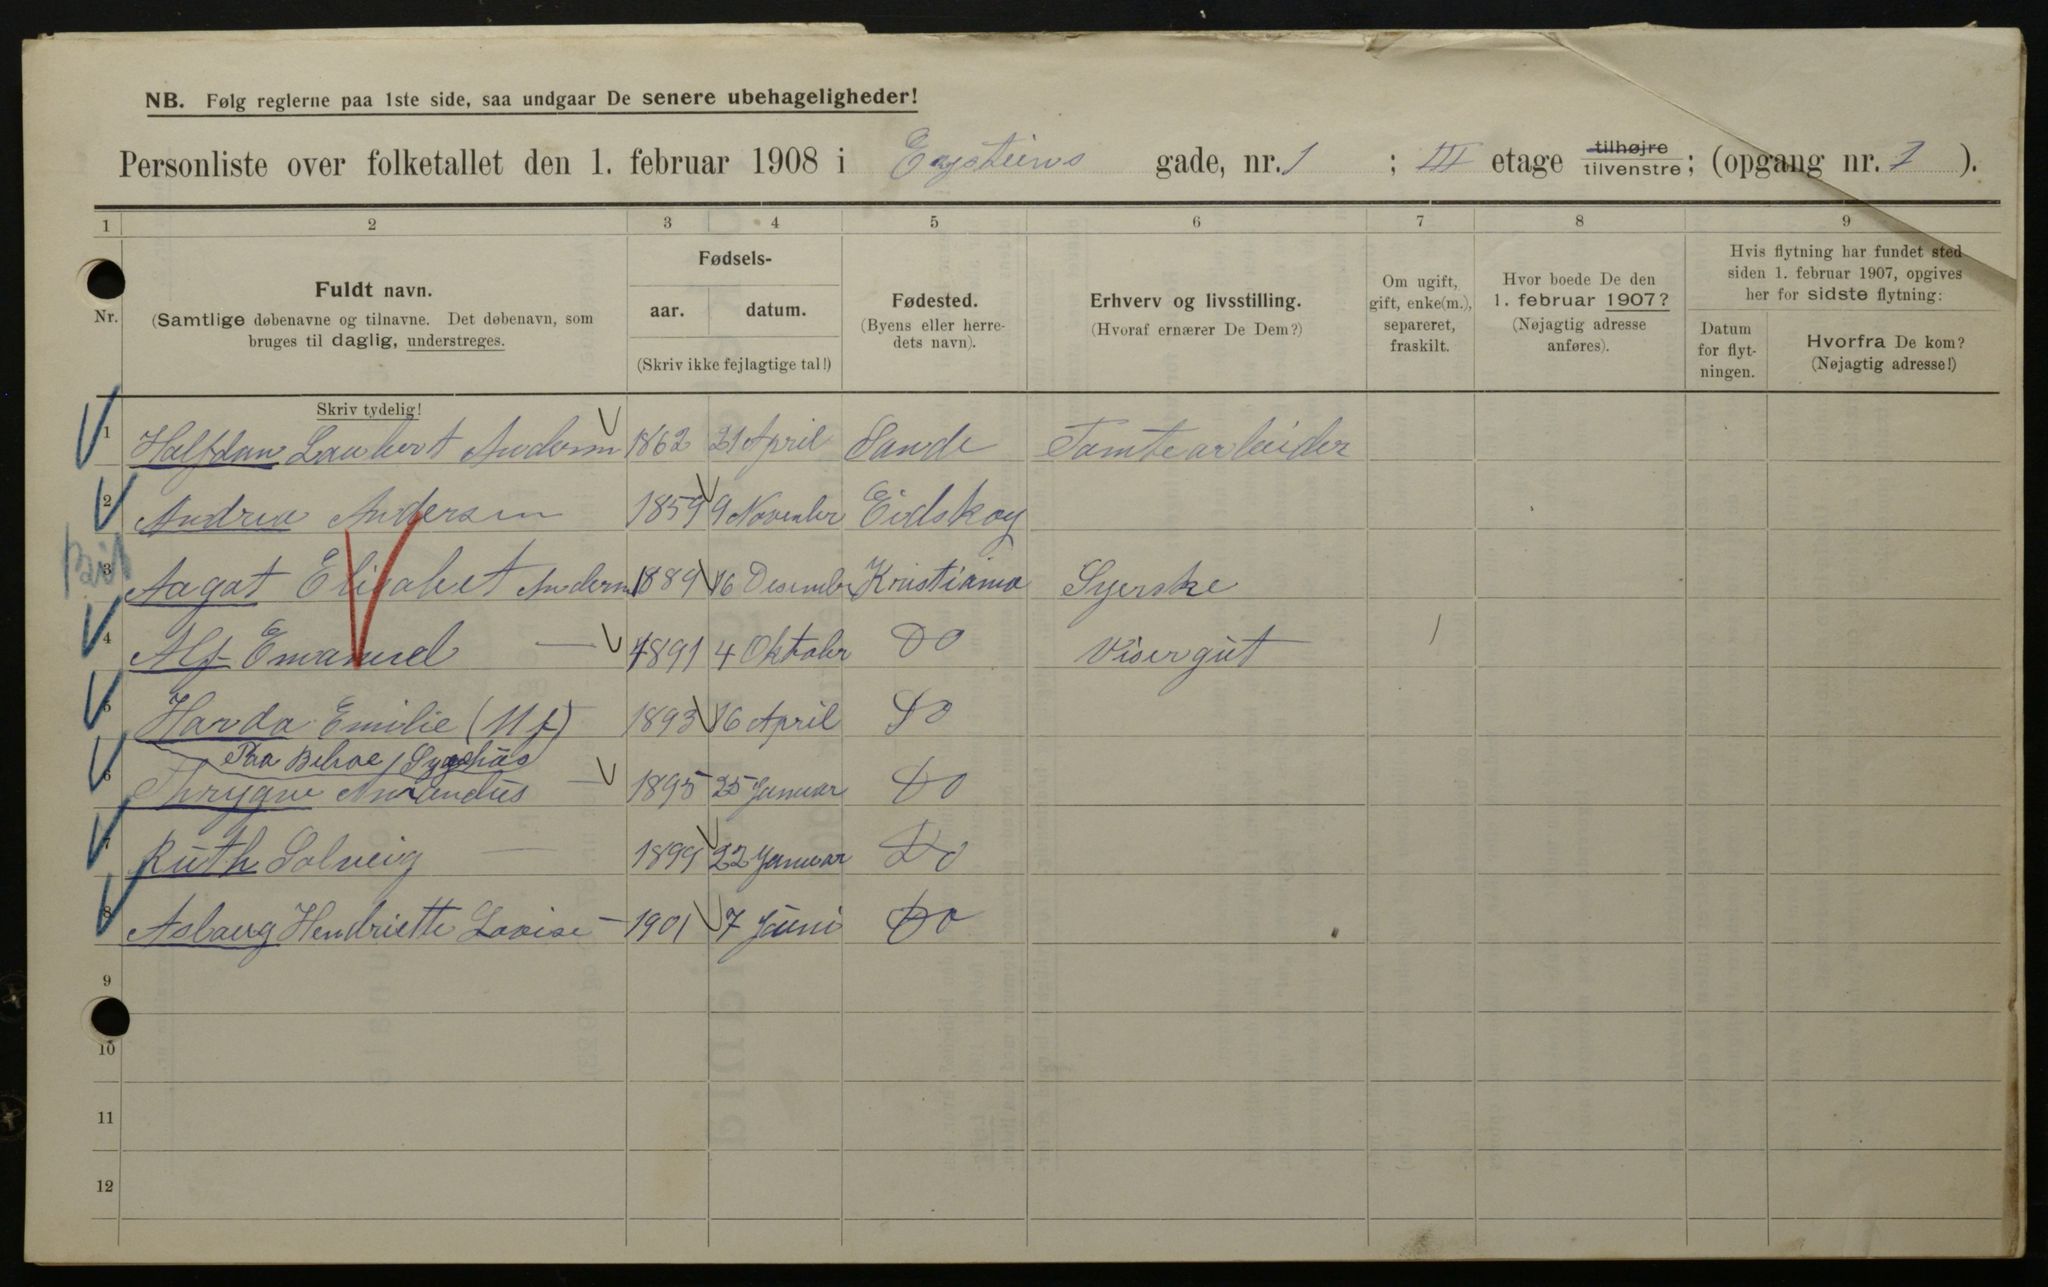 NB. Følg reglerne paa 1ste side, saa undgaar De senere ubehageligheder!
Personliste over folketallet den 1. februar 1908 i Eysteins gade, nr. 1 ; III etage tilhøjre tilvenstre; (opgang nr. 1 ).
1 2 3 4 5 6 7 8 9
Nr. Fuldt navn. (Samtlige døbenavne og tilnavne. Det døbenavn, som bruges til daglig, understreges.
Fødsels- aar. datum. (Skriv ikke fejlagtige tal!)
Fødested. (Byens eller herredets navn).
Erhverv og livsstilling. (Hvoraf ernærer De Dem?)
Om ugift, gift, enke(m.), separeret, fraskilt.
Hvor boede De den 1. februar 1907? (Nøjagtig adresse anføres).
Hvis flytning har fundet sted siden 1. februar 1907, opgives her for sidste flytning:
Datum for flytningen.
Hvorfra De kom? (Nøjagtig adresse!)
Skriv tydelig!
1 Halfdan Laubert Andersen 1862 21 April Sande Tomtearbeider
2 Andrea Andersen 1859 9 November Eidskog
3 Aagot Elisabet Andersen 1889 16 Desember Kristiania Syerske
4 Alf Emanuel — 1891 4 Oktober Do Visergut
5 Harda Emilie 1893 16 April Do
Paa Sygehus
6 Thrygve Amandus — 1895 25 Januar Do
7 Ruth Solveig — 1899 22 Januar Do
8 Asbaug Hendriette Lovise — 1901 7 Juni Do
9
10
11
12